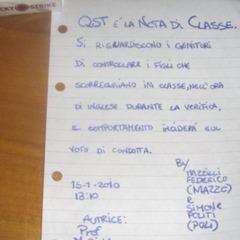 CKY STRIKE
QST È LA NOTA DI CLASSE.
SI RISGUARDISCONO I GENITORI
DI CONTROLLARE I FIGLI CHE
SCORREGGIANO IN CLASSE, NELL'ORA
DI INGLESE DURANTE LA VERIFICA,
IL COMPORTAMENTO INCIDERÀ SUL
VOTO DI CONDOTTA.
By
FEDERICO
(MAZZO)
E
SIMONE
POLITI
(POLI)
15-1-2010
13:10
AUTRICE:
Prof